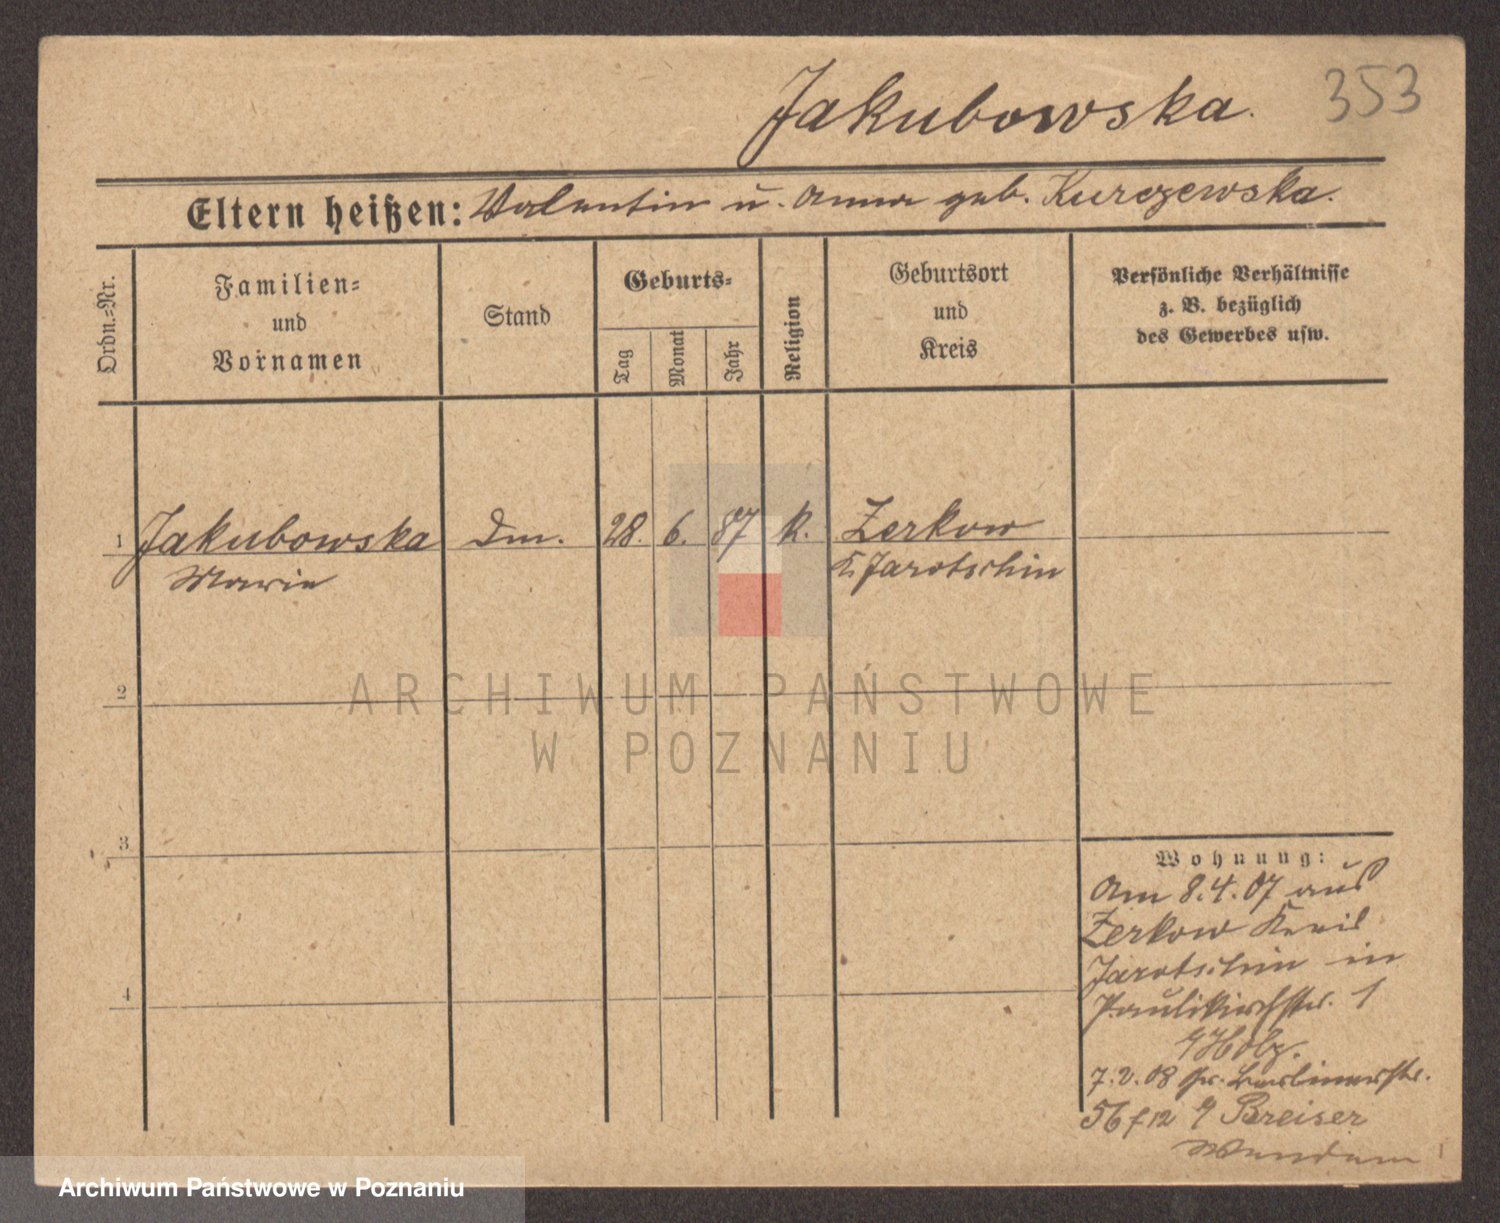 Jakubowska.
353
Eltern heißen: Valentin u. Anna geb. Kurczewska.
Ordn.-Nr.
Familien-
und
Vornamen
Stand
Geburts-
Tag
Monat
Jahr
Religion
Geburtsort
und
Kreis
Persönliche Verhältnisse
z. B. bezüglich
des Gewerbes usw.
1 Jakubowska Dm. 28. 6. 87 k. Zerkow
Marie K. Jarotschin
2
3
4
ARCHIWUM PAŃSTWOWE
W POZNANIU
Wohnung:
Am 8.4.07 aus
Zerkow Kreis
Jarotschin in
Paulikirchstr. 1
7.2.08 Gr. Berlinerstr.
56 f 12 Breiser
Archiwum Państwowe w Poznaniu